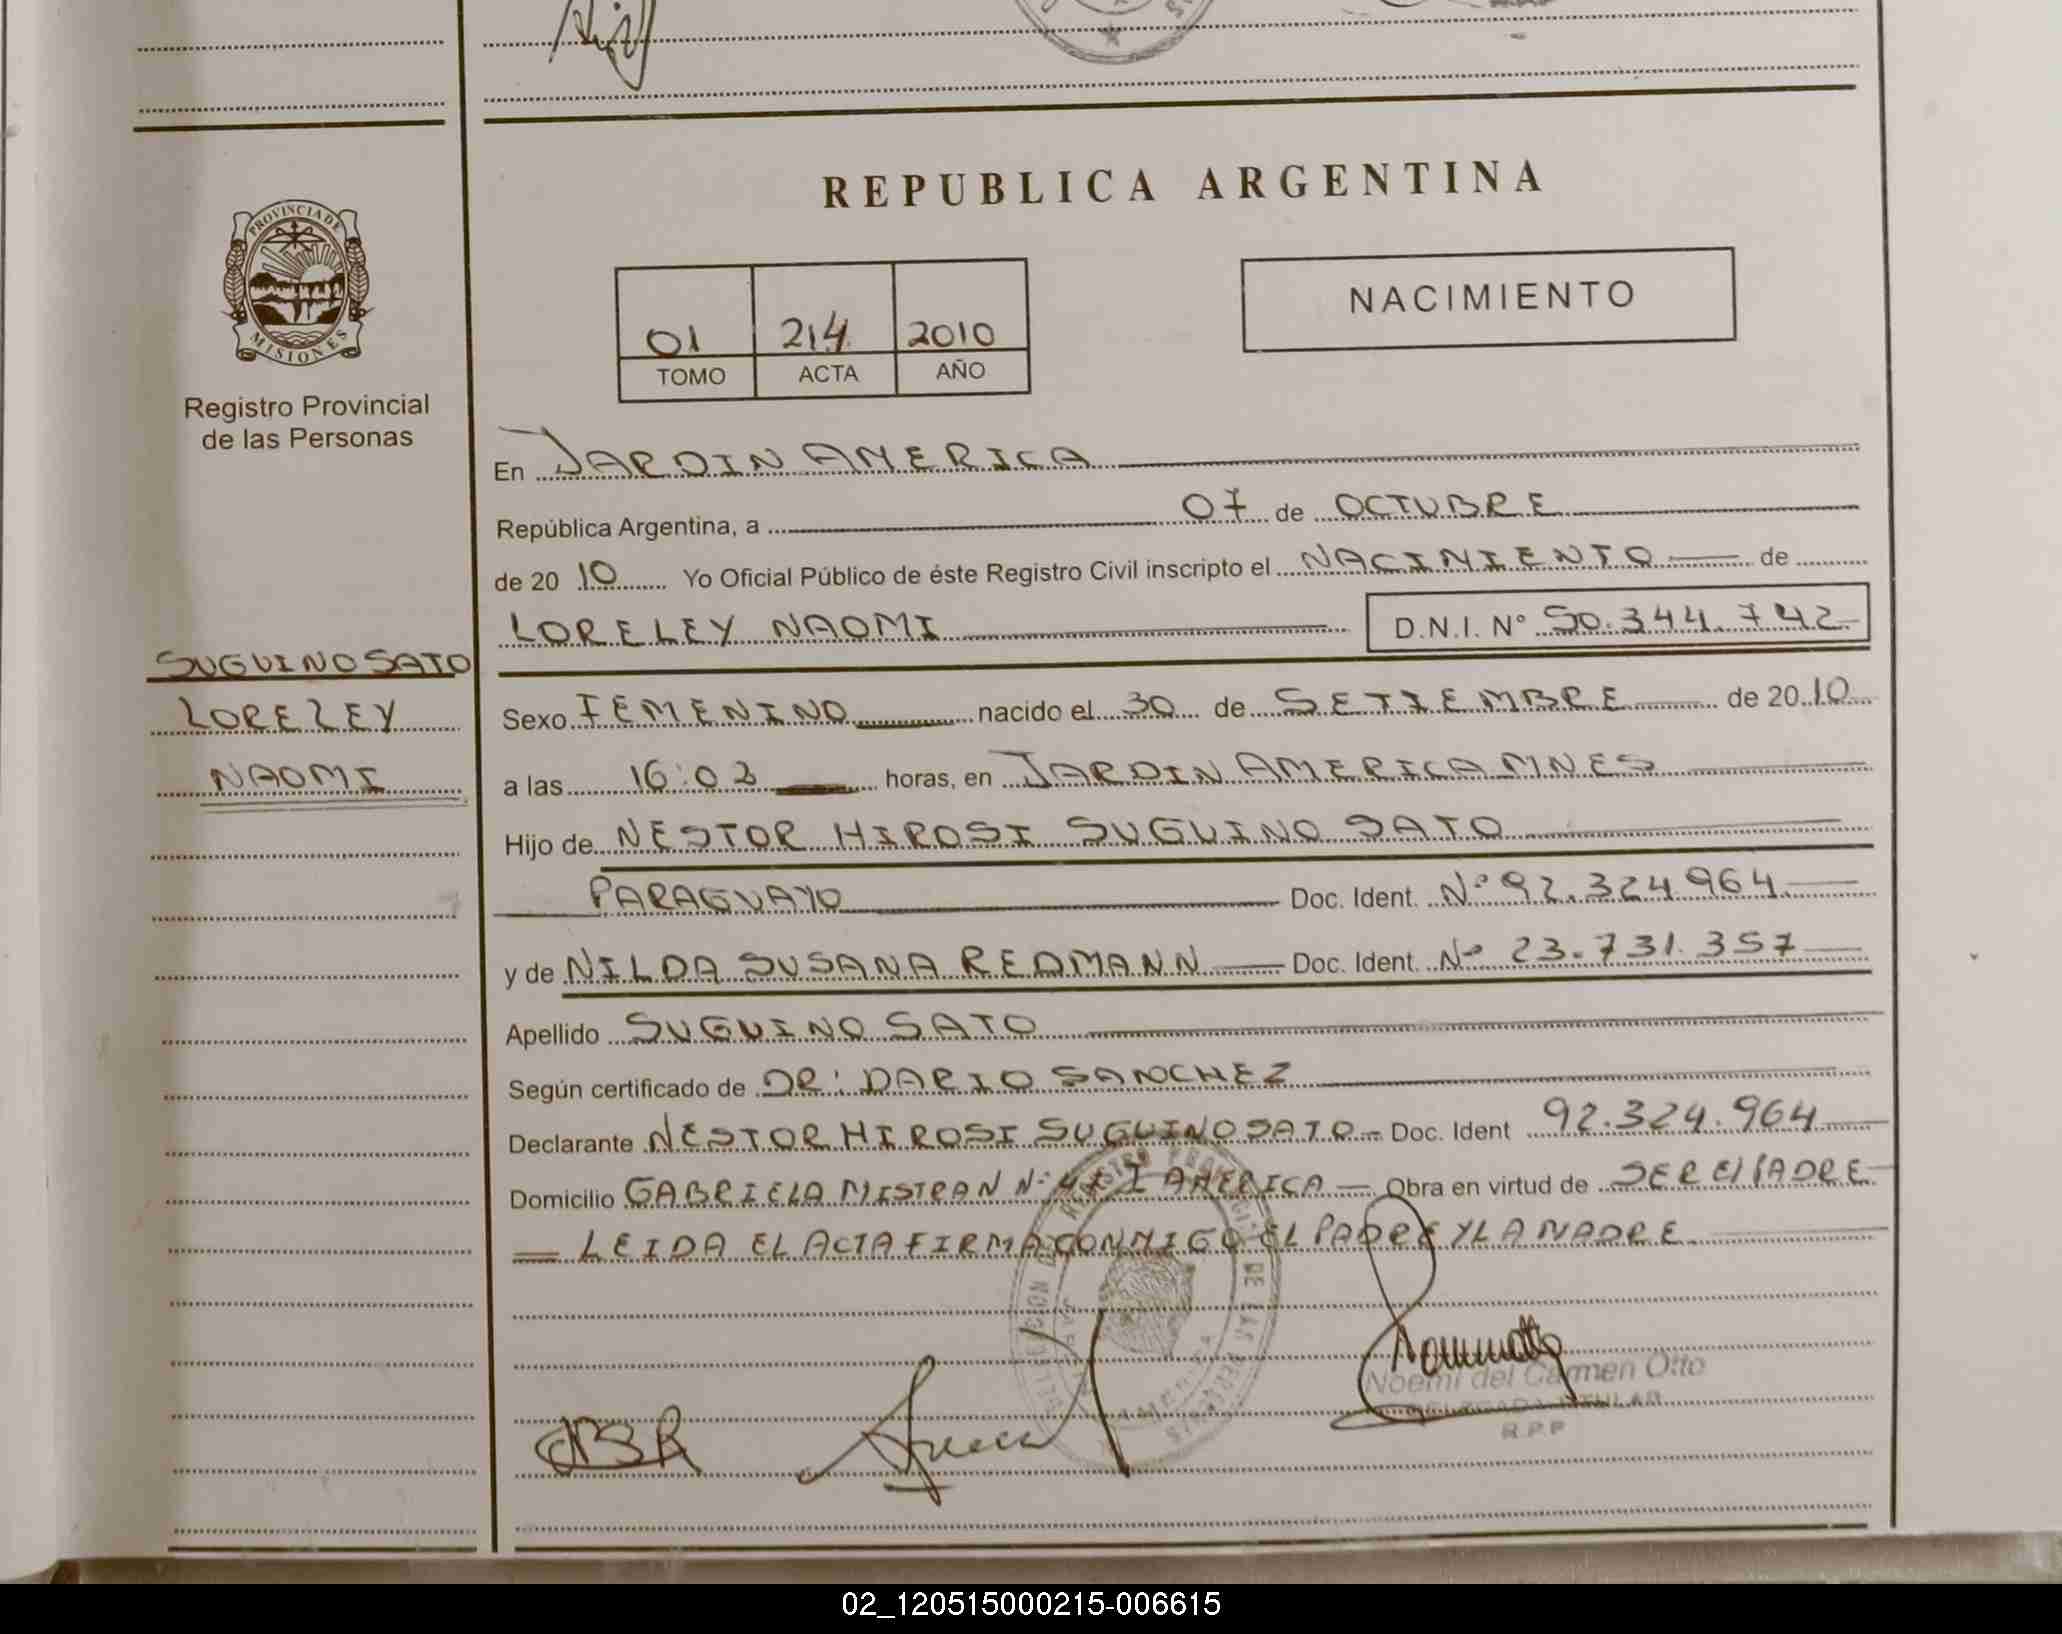 REPUBLICA ARGENTINA
PROVINCIA DE
MISIONES
Registro Provincial
de las Personas
01 214 2010
TOMO ACTA AÑO
NACIMIENTO
En JARDIN AMERICA
República Argentina, a 07 de OCTUBRE
de 20 10 Yo Oficial Público de éste Registro Civil inscripto el NACIMIENTO de
LORELEY NAOMI D.N.I. N° 50.344.742
SUGUINO SATO
LORELEY
NAOMI
Sexo FEMENINO nacido el 30 de SETIEMBRE de 20 10
a las 16:02 horas, en JARDIN AMERICA MNES
Hijo de NESTOR HIROSI SUGUINO SATO
PARAGUAYO Doc. Ident. N° 92.324.964
y de NILDA SUSANA REDMANN Doc. Ident. N° 23.731.357
Apellido SUGUINO SATO
Según certificado de DR: DARIO SANCHEZ
Declarante NESTOR HIROSI SUGUINO SATO - Doc. Ident 92.324.964
Domicilio GABRIELA MISTRAN N° AMERICA - Obra en virtud de SER El PADRE
LEIDA EL ACTA FIRMA CONMIGO EL PADRE Y LA MADRE
Noemi del Carmen Otto
TITULAR
R.P.P
02_120515000215-006615